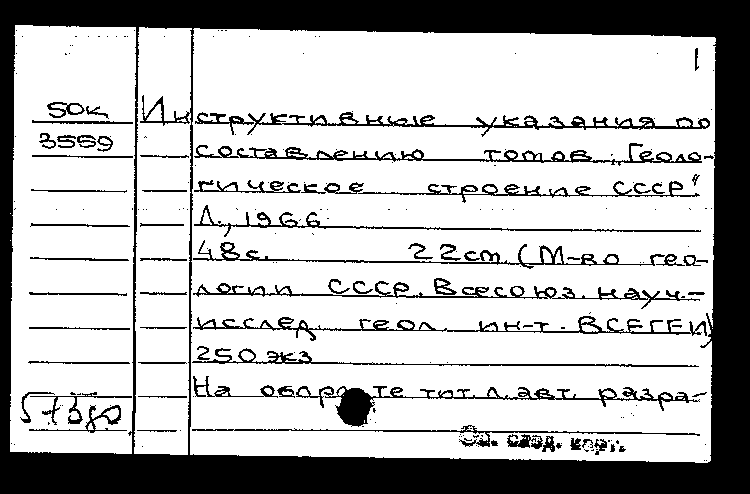 1
50к Инструктивные указания по
3559 составлению томов „Геоло-
гическое строение СССР"
Л., 1966
48с. 22cm (М-во гео-
логии СССР. Всесоюз. науч.-
исслед. геол. ин-т. ВСЕГЕИ)
250 экз
На обороте тит. л. авт. разра-
См. след. карт.